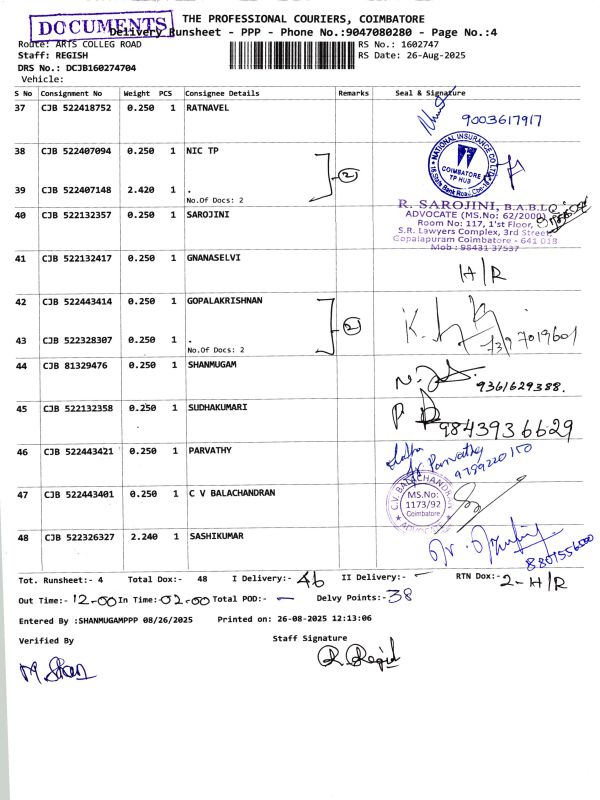 DOCUMENTS
THE PROFESSIONAL COURIERS, COIMBATORE
Delivery Runsheet - PPP - Phone No.:9047080280 - Page No.:4
Route: ARTS COLLEG ROAD
RS No.: 1602747
Staff: REGISH
RS Date: 26-Aug-2025
DRS No.: DCJB160274704
Vehicle:
S No Consignment No Weight PCS Consignee Details Remarks Seal & Signature
37 CJB 522418752 0.250 1 RATNAVEL
9003617917
38 CJB 522407094 0.250 1 NIC TP
2
NATIONAL INSURANCE CO LTD
COIMBATORE
TP HUB
39 CJB 522407148 2.420 1 .
No.Of Docs: 2
40 CJB 522132357 0.250 1 SAROJINI
R. SAROJINI, B.A.B.L.
ADVOCATE (MS.No: 62/2000)
Room No: 117, 1'st Floor,
S.R. Lawyers Complex, 3rd Street,
Gopalapuram Coimbatore - 641 018
Mob : 98431 37537
41 CJB 522132417 0.250 1 GNANASELVI
H/R
42 CJB 522443414 0.250 1 GOPALAKRISHNAN
2
7397019601
43 CJB 522328307 0.250 1 .
No.Of Docs: 2
44 CJB 81329476 0.250 1 SHANMUGAM
9361629388.
45 CJB 522132358 0.250 1 SUDHAKUMARI
9843936629
46 CJB 522443421 0.250 1 PARVATHY
Parvathy
9799220150
47 CJB 522443401 0.250 1 C V BALACHANDRAN
C.V. BALACHANDRAN
MS.No:
1173/92
Coimbatore
ADVOCATE
48 CJB 522326327 2.240 1 SASHIKUMAR
Tot. Runsheet:- 4 Total Dox:- 48 I Delivery:- 46 II Delivery:- - RTN Dox:- 2-H/R
Out Time:- 12-00 In Time:- 02-00 Total POD:- - Delvy Points:- 38
Entered By :SHANMUGAMPPP 08/26/2025 Printed on: 26-08-2025 12:13:06
Verified By
Staff Signature
R. Regid